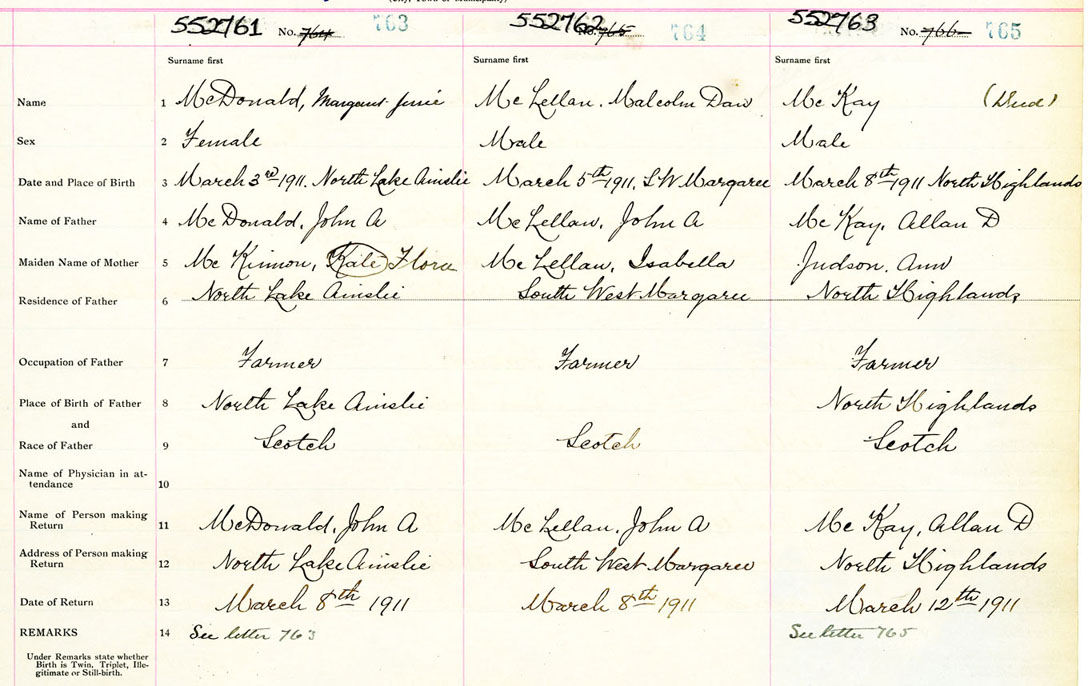 (City, Town or Municipality)
552761 No. 764 763 552762 No. 765 764 552763 No. 766 765
Surname first Surname first Surname first
Name 1 McDonald, Margaret Mc Lellan. Malcolm Dan Mc Kay (Dead)
Sex 2 Female Male Male
Date and Place of Birth 3 March 3rd 1911. North Lake Ainslie March 5th 1911, S W Margaree March 8th 1911 North Highlands
Name of Father 4 McDonald, John A Mc Lellan, John A Mc Kay, Allan D
Maiden Name of Mother 5 Mc Kinnon, Kate Flora Mc Lellan, Isabella Judson. Ann
Residence of Father 6 North Lake Ainslie South West Margaree North Highlands
Occupation of Father 7 Farmer Farmer Farmer
Place of Birth of Father 8 North Lake Ainslie North Highlands
and
Race of Father 9 Scotch Scotch Scotch
Name of Physician in at-
tendance 10
Name of Person making
Return 11 McDonald, John A Mc Lellan, John A Mc Kay, Allan D
Address of Person making
Return 12 North Lake Ainslie South West Margaree North Highlands
Date of Return 13 March 8th 1911 March 8th 1911 March 12th 1911
REMARKS 14 See letter 763 See letter 765
Under Remarks state whether
Birth is Twin, Triplet, Ille-
gitimate or Still-birth.